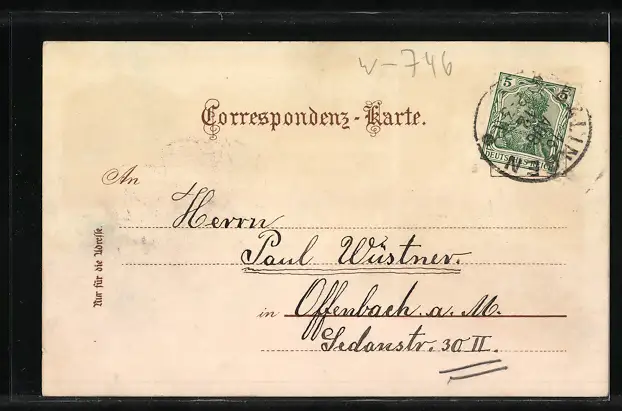 w-746
5 5
Correspondenz-Karte.
DEUTSCHES REICH
An
Herrn
Paul Wüstner.
in Offenbach a. M.
Sedanstr. 30 II.
Nur für die Adresse.